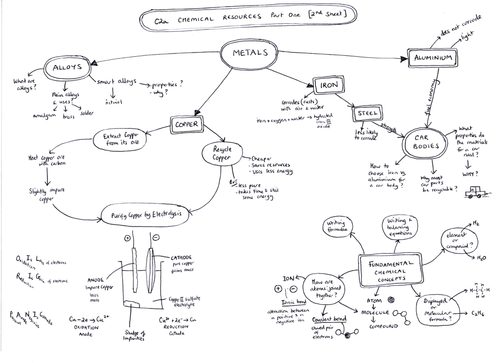 C2a CHEMICAL RESOURCES Part One [2nd Sheet]
METALS
ALLOYS
What are
alloys?
Main alloys
& uses
amalgam
brass
solder
smart alloys
nitinol
properties?
- why?
ALUMINIUM
does not corrode
light
IRON
corrodes (rusts)
with air & water
iron + oxygen + water → hydrated
iron III
oxide
STEEL
less likely
to corrode
CAR
BODIES
What
properties do
the materials
for a car
need?
WHY?
How to
choose iron vs
aluminium for
a car body?
Why must
car parts
be recyclable?
COPPER
Extract Copper
from its ore
Heat copper ore
with carbon
Slightly impure
copper
Recycle
Copper
- Cheaper
- Saves resources
- Uses less energy
But
- less pure
- takes time & still
some energy
Purify Copper by Electrolysis
ANODE
impure copper
loses mass
CATHODE
pure copper
gains mass
Copper II sulfate
electrolyte
Sludge of
impurities
Oxidation Is Loss of electrons
Reduction Is Gain of electrons
Cu - 2e → Cu²⁺
OXIDATION
Anode
Cu²⁺ + 2e⁻ → Cu
REDUCTION
Cathode
FUNDAMENTAL
CHEMICAL
CONCEPTS
Writing
formulae
Writing &
balancing
equations
element
or
compound?
H₂
H₂O
Displayed
or
Molecular
formula?
H-C-C-H
C₂H₆
How are
atoms joined
together?
ION
Ionic bond
attraction between
a positive & a
negative ion
Covalent bond
shared pair of
electrons
ATOM
MOLECULE
COMPOUND